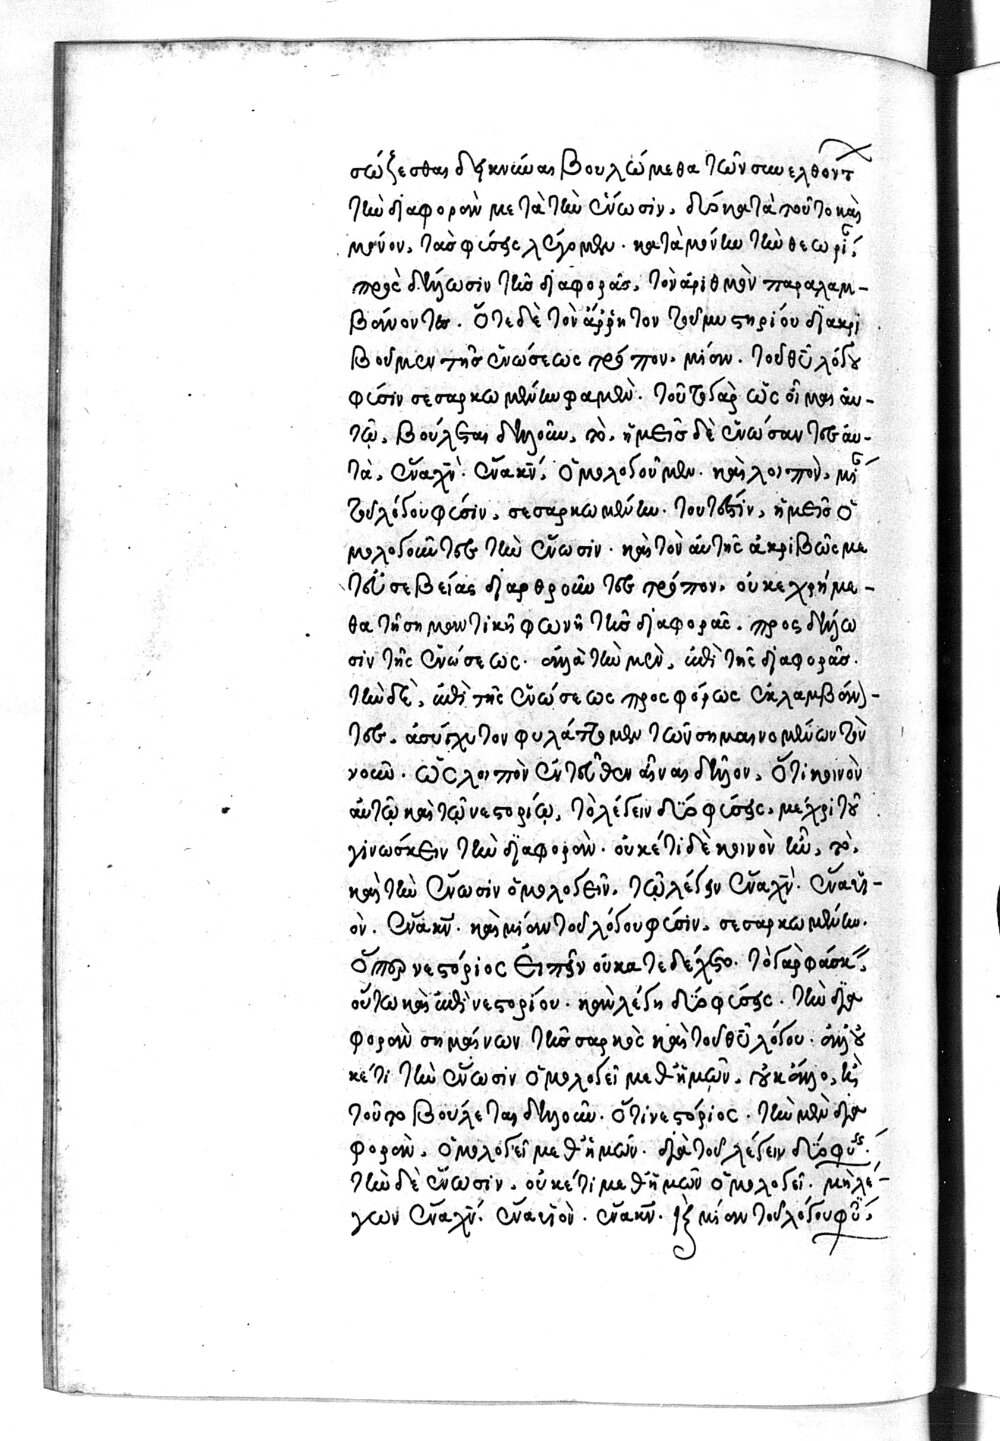 σώζεσθαι δεικνύναι βουλώμεθα τῶν συνελθόντ
τὴν διαφορὰν μετὰ τὴν ἕνωσιν. διὸ κατὰ τοῦτο καὶ
μόνον, τὰς φύσεις λέγομεν. κατὰ μόνην τὴν θεωρί,
πρὸς δήλωσιν τῆς διαφορᾶς, τὸν ἀριθμὸν παραλαμ-
βάνοντες. ὅτε δὲ τὸν ἄρρητον τοῦ μυστηρίου διακρι
βοῦμεν τῆς ἑνώσεως τρόπον. μίαν. τοῦ θῦ λόγου
φύσιν σεσαρκωμένην φαμέν. τοῦτο γὰρ ὡς οἶμαι αὐ-
τῷ. βούλεται δηλοῦν, τὸ, ἡμεῖς δὲ ἑνώσαντες αὐ-
τὰ, ἕνα χν. ἕνα κν, ὁμολογοῦμεν. καὶ λοιπὸν, μί
τοῦ λόγου φύσιν, σεσαρκωμένην. τουτέστιν, ἡμεῖς ὁ
μολογοῦντες τὴν ἕνωσιν. καὶ τὸν αὐτῆς ἀκριβῶς με
τ εὐσεβείας διαρθροῦντες τρόπον. οὐ κεχρήμε-
θα τῇ σημαντικῇ φωνῇ τῆς διαφορᾶς. προς δήλω
σιν τῆς ἑνώσεως. ἀλλὰ τὴν μὲν, ἐπὶ τῆς διαφορᾶς.
τὴν δὲ, ἐπὶ τῆς ἑνώσεως προσφόρως ἐκλαμβάνον-
τες. ἀσύγχυτον φυλάττομεν τῶν σημαινομένων τὸν
νοῦν. ὡς λοιπὸν ἐντεῦθεν εἶναι δῆλον, ὅτι κοινὸν
αὐτῷ καὶ τῷ νεστορίῳ, τὸ λέγειν δύο φύσεις. μέχρι τοῦ
γινώσκειν τὴν διαφοράν. οὐκέτι δὲ κοινὸν ἦν, τὸ,
καὶ τὴν ἕνωσιν ὁμολογεῖν. τῷ λέγειν ἕνα χν. ἕνα υἱ-
όν. ἕνα κν. καὶ μίαν τοῦ λόγου φύσιν. σεσαρκωμένην.
ὅπερ νεστόριος εἰπεῖν οὐ κατεδέξατο. τὸ γὰρ φάσκειν,
οὕτω καὶ ἐπὶ νεστορίου. κἂν λέγῃ δύο φύσεις. τὴν δια
φορὰν σημαίνων τῆς σαρκὸς καὶ τοῦ θῦ λόγου. ἀλλ οὐ
κέτι τὴν ἕνωσιν ὁμολογεῖ μεθ ἡμῶν. οὐκ ἄλλο, εἰ
τοῦτο βούλεται δηλοῦν. ὅτι νεστόριος. τὴν μὲν δια
φορὰν. ὁμολογεῖ μεθ ἡμῶν. διὰ τοῦ λέγειν δύο φύσ.
τὴν δὲ ἕνωσιν. οὐκέτι μεθ ἡμῶν ὁμολογεῖ. μὴ λέ-
γων ἕνα χν. ἕνα υἱόν. ἕνα κν. καὶ μίαν τοῦ λόγου φύ,